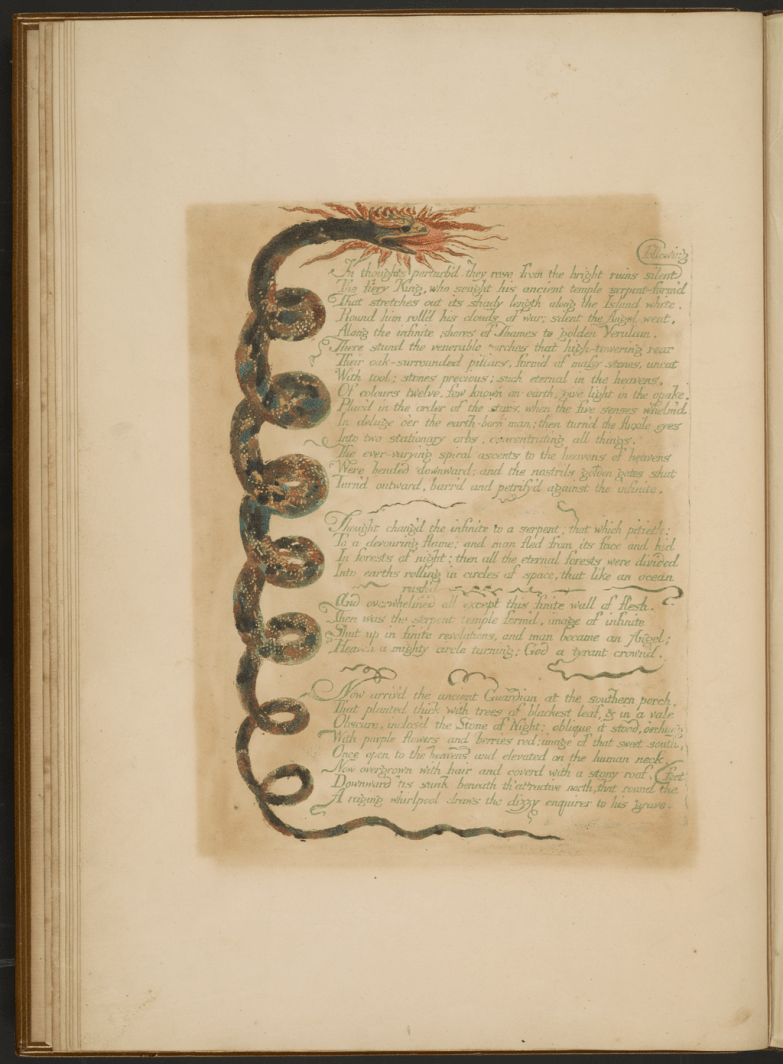 Following
In thoughts perturb'd they rose from the bright ruins silent
The fiery King, who sought his ancient temple serpent-form'd
That stretches out its shady length along the Island white.
Round him roll'd his clouds of war; silent the Angel went,
Along the infinite shores of Thames to golden Verulam.
There stand the venerable porches that high-towering rear
Their oak-surrounded pillars, form'd of massy stones, uncut
With tool; stones precious; such eternal in the heavens,
Of colours twelve, few known on earth, give light in the opake,
Plac'd in the order of the stars, when the five senses whelm'd
In deluge o'er the earth-born man; then turn'd the fluxile eyes
Into two stationary orbs, concentrating all things.
The ever-varying spiral ascents to the heavens of heavens
Were bended downward; and the nostrils golden gates shut
Turn'd outward, barr'd and petrify'd against the infinite.
Thought chang'd the infinite to a serpent; that which pitieth:
To a devouring flame; and man fled from its face and hid
In forests of night; then all the eternal forests were divided
Into earths rolling in circles of space, that like an ocean
rush'd
And overwhelmed all except this finite wall of flesh.
Then was the serpent temple form'd, image of infinite
Shut up in finite revolutions, and man became an Angel;
Heaven a mighty circle turning; God a tyrant crown'd.
Now arriv'd the ancient Guardian at the southern porch,
That planted thick with trees of blackest leaf, & in a vale
Obscure, inclos'd the Stone of Night; oblique it stood, o'erhung
With purple flowers and berries red; image of that sweet south,
Once open to the heavens and elevated on the human neck,
Now overgrown with hair and cover'd with a stony roof,
Downward 'tis sunk beneath th' attractive north, that round the
feet
A raging whirlpool draws the dizzy enquirer to his grave.